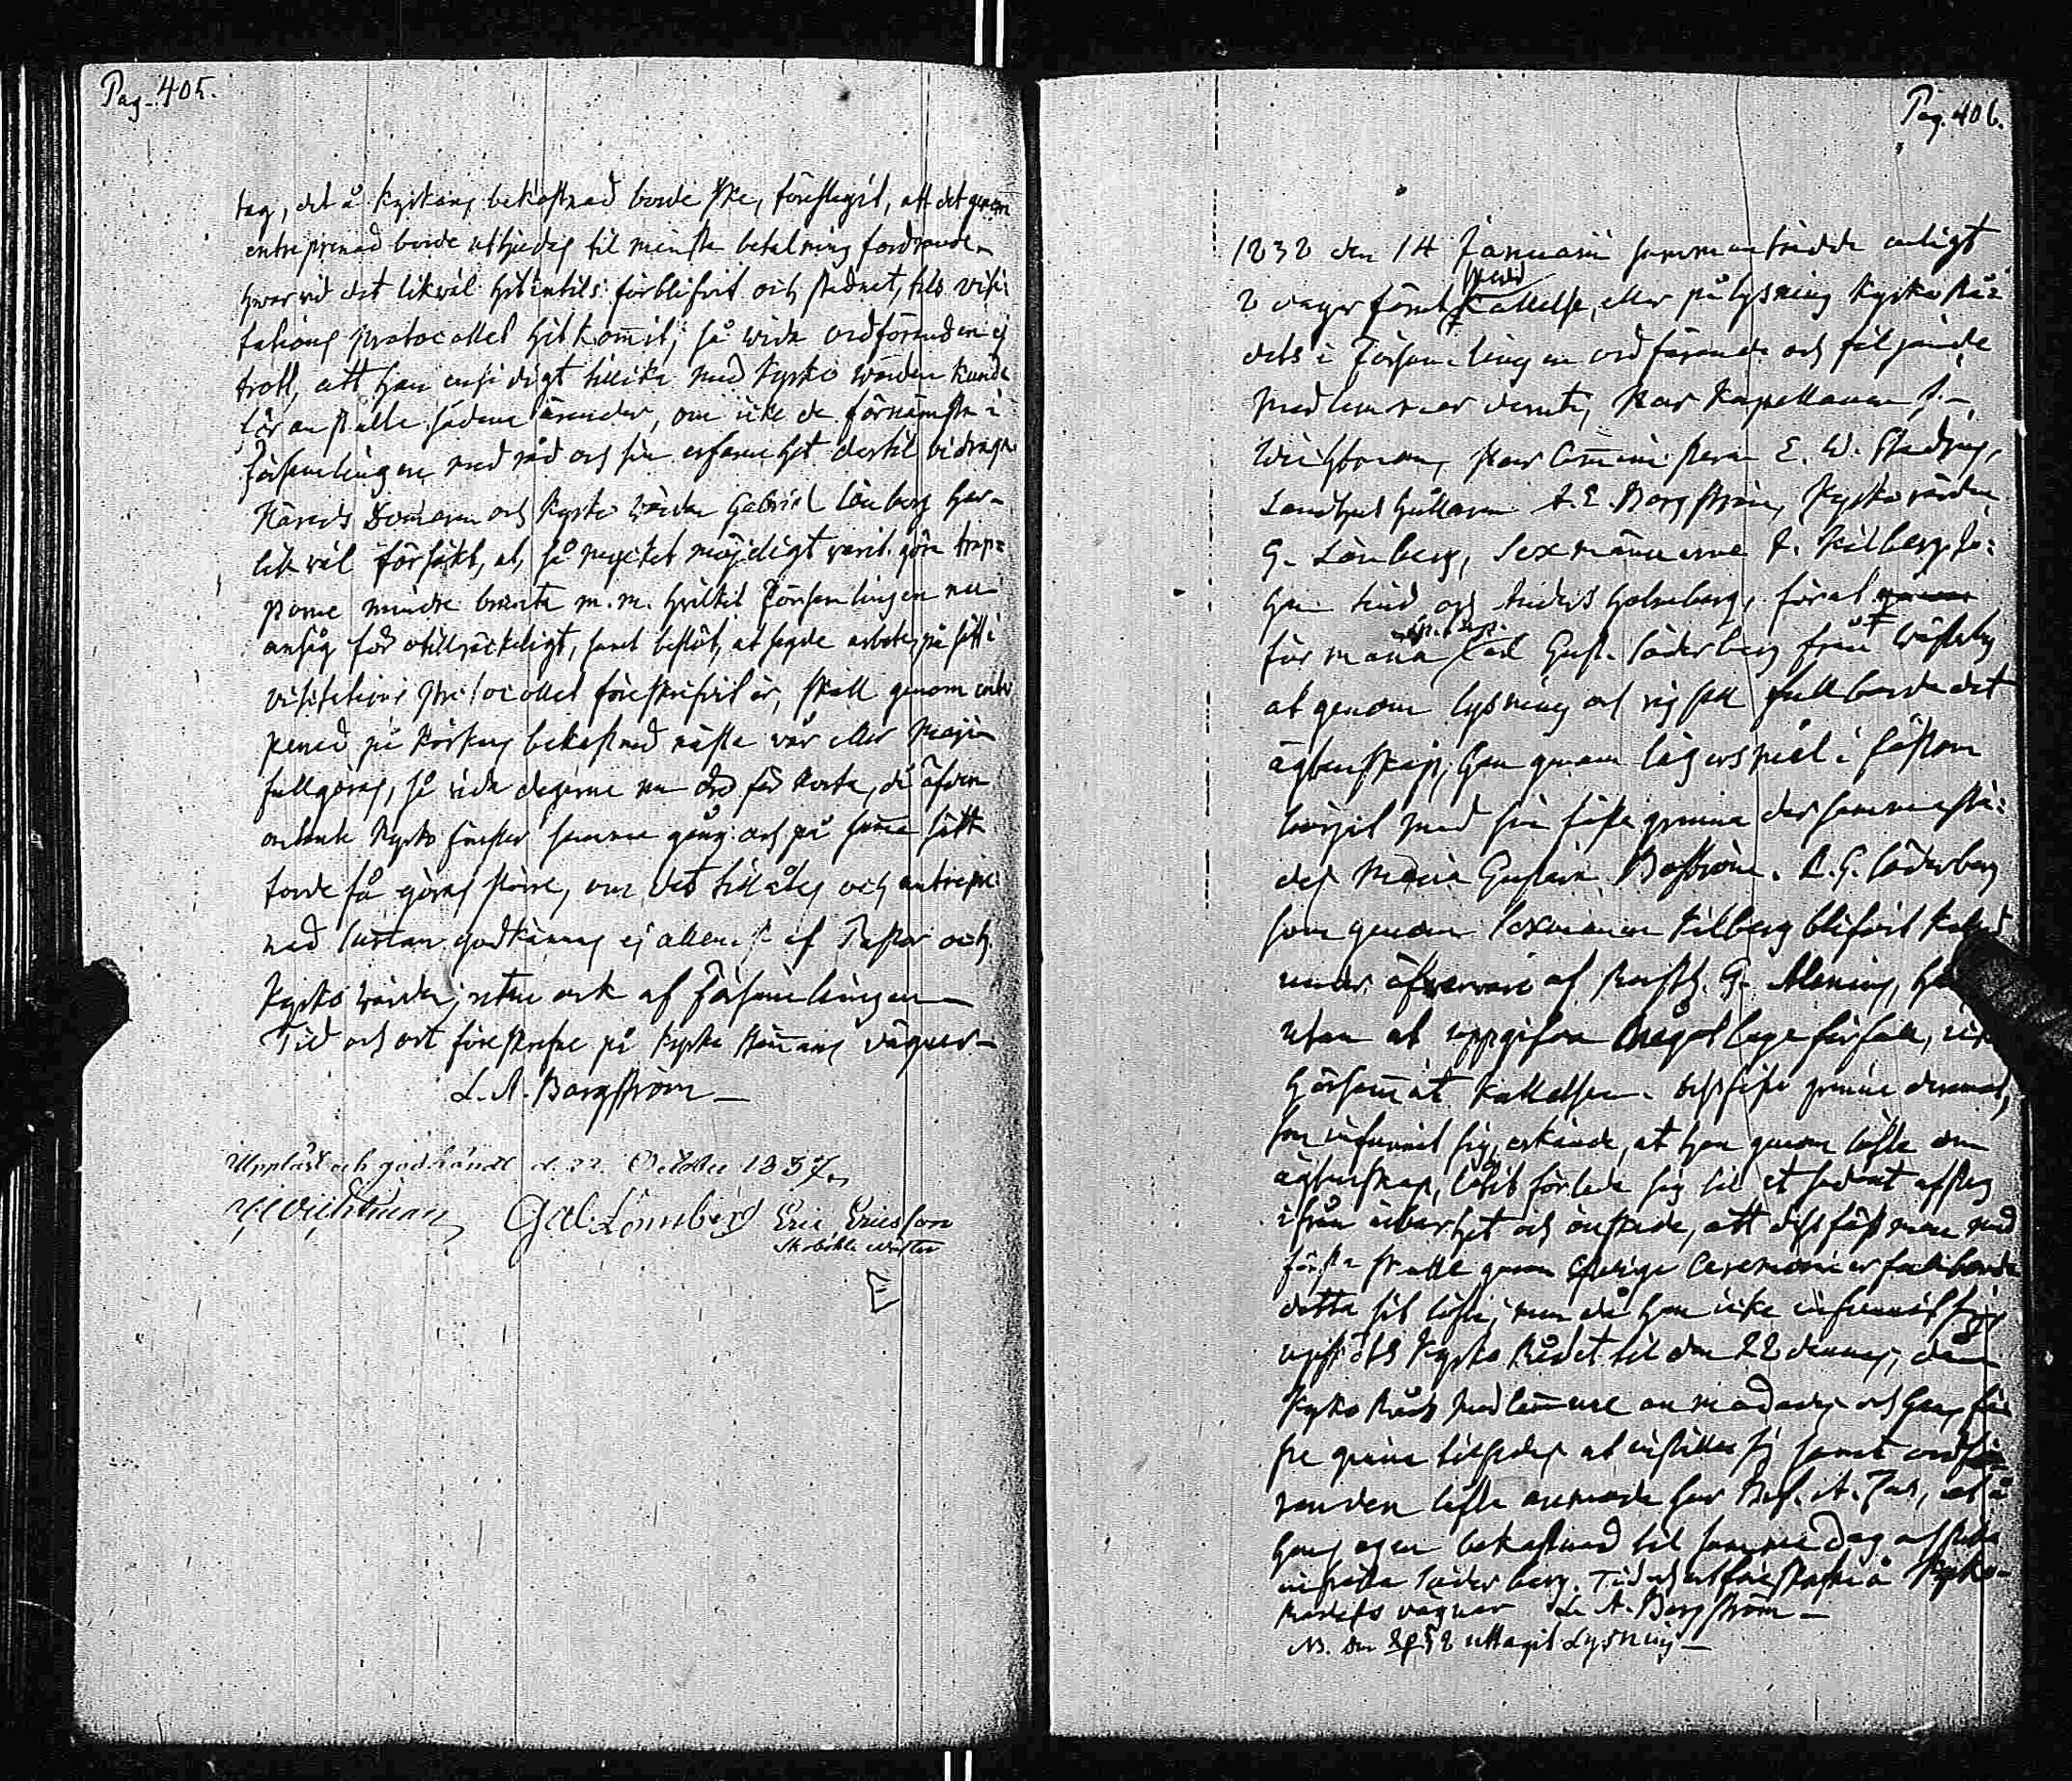 Pag. 405.
tag, det å Kyrkans bekostnad borde ske, föreslagit, att det genom
entreprenad borde utbjudas til minsta betalning fordrande
hvarvid det likväl hitintils förblifvit och stadnat, tils visi-
tations protocollet hitkom̄it; så vida ordföranden ej
trott, att han ensidigt tillika med Kyrko värden kunde
föranstalta sådana ärender, om icke de förnämsta i
Församlingen med råd och sin erfarenhet dertil bidraga
Härads Domaren och Kyrko Värden Gabriel Lönberg har
likväl försökt, at, så mycket möjeligt varit göra trap-
porne mindre branta m.m. hvilket Församlingen nu
ansåg för otillräckeligt, samt beslöt, at sagde arbete, på sätt i
visitations Protocollet föreskrifvit är, skall genom entre
penad på Kyrkans bekostnad nästa vår eller Maji
fullgöras, så vida dagarne nu äro för korta, då äfven
Kyrko fönster samma gång och på sam̄a sätt
torde få göras större, om det tillåtes och entrepre
nad summan godkännas ej allenast af Pastor och
Kyrko Värden, utan ock af Församlingen
Tid och ort föreskrefne på Kyrko Stämmans vägnar
L. A. Borgström
Uppläst och godkändt d. 22 October 1837.
Gab. Lönnberg Eric Ericsson
Pag. 406.
1838 den 14 Januarii sammanträdde enligt
2 dagar förut skedd Kallelse, eller pålysning Kyrko Rå-
dets i Församlingen ordförande och följande
Medlemmar deraf, Herr Kapellanen
Herr Com̄inistern E. W.
A. E. Borgström, Kyrkovärden
G. Lönberg, Sexmännerne P. Kilberg Jo-
han Lind och Anders Holmberg, för at
förmana Carl Gust. Söderberg från Wästeby
at genom lysning och vigsel fullborda det
ägtenskap, han genom lägersmål i fästom
börjat med sin fäste qvinna dersammastä-
des Maria Gustava Boström. C. G. Söderberg
som genom Sexmannen Kilberg blifvit kallad
under öfvervaro af G. Alening, har
utan at uppgifva något lagaförfall, icke
hörsam̄at kallelsen. Dess fäste qvinna deremot,
som infunnit sig, erkände, at hon genom löfte om
ägtenskap, låtit förleda sig til et sådant afsteg
ifrån ärbarhet och önskade, att dess fästman med
första skulle genom Ceremonier fullborda
detta sit löfte, men då han icke infunnit sig,
uppsköts Kyrko Rådet til den 22 dennes, då
Kyrko Råds Medlem̄arne anmodades och hans fä-
ste qvinna tilsades at inställa sig samt ordfö-
randen lofte anmoda Herr at å
hans egen bekostnad til samma dag
inställa Söderberg. Tid och ort föreskrefne å Kyrko-
Rådets vägnar L. A. Borgström
NB. Den uttagit Lysning